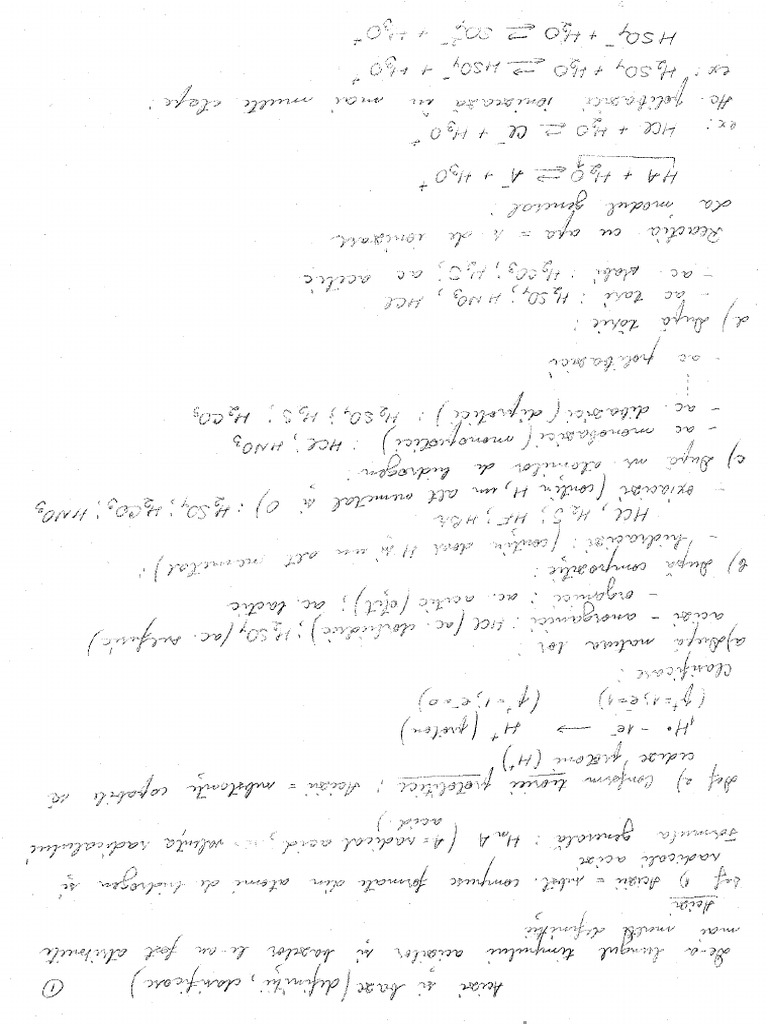 Acizi și baze (definiții, clasificare) ①
De-a lungul timpului acizilor și bazelor le-au fost atribuite
mai multe definiții
Acizi
Def 1) Acizii = subst. compuse formate din atomi de hidrogen și
radicali acizi
Formula generală : HnA (A = radical acid, n = valența radicalului
acid)
Def 2) Conform teoriei protolitice : Acizii = substanțe capabile să
cedeze protoni (H⁺)
H• - 1e⁻ → H⁺ (proton)
(p⁺=1; e⁻=1) (p⁺=1; e⁻=0)
Clasificare :
a) După natura lor
acizi - anorganici : HCl (ac. clorhidric) ; H2SO4 (ac. sulfuric)
- organici : ac. acetic (oțet) ; ac. lactic
b) După compoziție :
- hidracizi : (conțin doar H și un alt nemetal) :
HCl, H2S ; HF ; HBr
- oxiacizi (conțin H, un alt nemetal și O) : H2SO4 ; H2CO3 ; HNO3
c) După nr atomilor de hidrogen :
- ac monobazici (monoprotici) : HCl, HNO3
- ac. dibazici (diprotici) : H2SO4 ; H2S ; H2CO3
- ac polibazici
d) După tărie :
- ac tari : H2SO4 ; HNO3, HCl
- ac. slabi : H2CO3 ; H2S ; ac acetic
Reacția cu apa = r. de ionizare
La modul general :
HA + H2O ⇌ A⁻ + H3O⁺
ex : HCl + H2O ⇌ Cl⁻ + H3O⁺
Ac. polibazici ionizează în mai multe etape :
ex : H2SO4 + H2O ⇌ HSO4⁻ + H3O⁺
HSO4⁻ + H2O ⇌ SO4²⁻ + H3O⁺